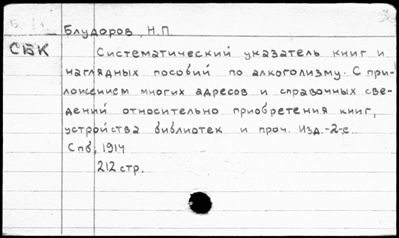 Блудоров, Н.П.
СБК
Систематический указатель книг и
наглядных пособий по алкоголизму. С при-
ложением многих адресов и справочных све-
дений относительно приобретения книг,
устройства библиотек и проч. Изд.-2-е.
Спб, 1914
212 стр.